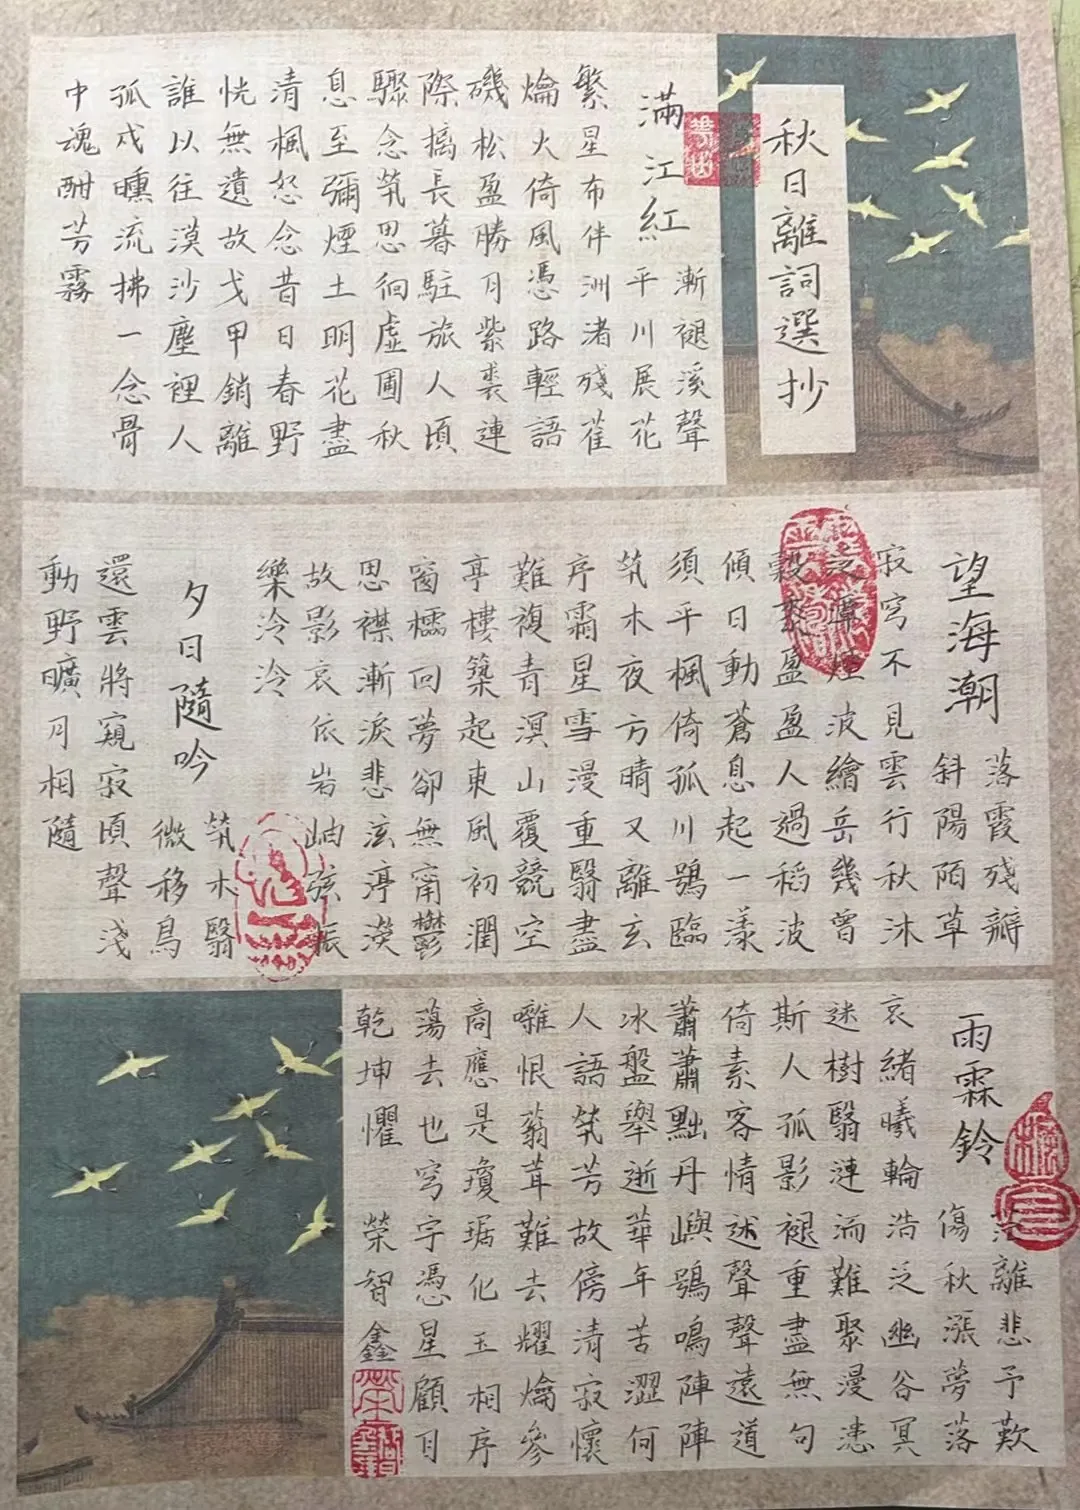 秋日離詞選抄
滿江紅
漸褪溪聲
平川展花
繁星布伴洲渚殘萑
爚火倚風憑路輕語
磯松盈勝月紫裘連
際搞長暮駐旅人頃
驟念茕思徊虛圃秋
息至彌煙土明花盡
清楓怒念昔日春野
恍無遺故戈甲銷離
誰以往漠沙塵裡人
孤戍曛流拂一念骨
中魂酣芳霧
望海潮
落霞殘瓣
斜陽陌草
寂穹不見雲行秋沐
波繪岳幾曾
盈盈人過稻波
傾日動蒼息起一漾
須平楓倚孤川鶚臨
茕木夜方晴又離玄
序霜星雪漫重翳盡
難複青溟山覆競空
亭樓築起東風初潤
窗檽回夢卻無甯鬱
思襟漸淚悲泫渟濙
故影哀依岩岫弦振
樂泠泠
夕日隨吟
茕木翳
微移鳥
還雲將窺寂頃聲淺
動野曠月相隨
雨霖鈴
離悲予歎
傷秋漲夢落
哀緒曦輪浩泛幽谷冥
迷樹翳漣洏難聚漫漶
斯人孤影褪重盡無句
倚素客情述聲聲遠道
蕭蕭黜丹嶼鶚鳴陣陣
冰盤舉逝華年苦澀何
人語茕芳故傍清寂懷
囃恨蓊茸難去耀爚參
商應是瓊琚化玉相序
蕩去也穹宇憑星顧月
乾坤懼
榮智鑫